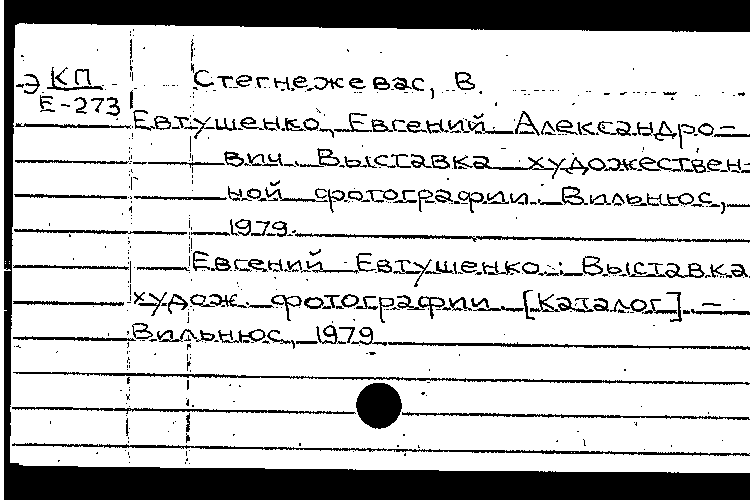 Э КП
Е-273
Стегнежевас, В.
Евтушенко, Евгений Александро-
вич. Выставка художествен-
ной фотографии. Вильнюс,
1979.
Евгений Евтушенко: Выставка
худож. фотографии. [Каталог]. –
Вильнюс, 1979